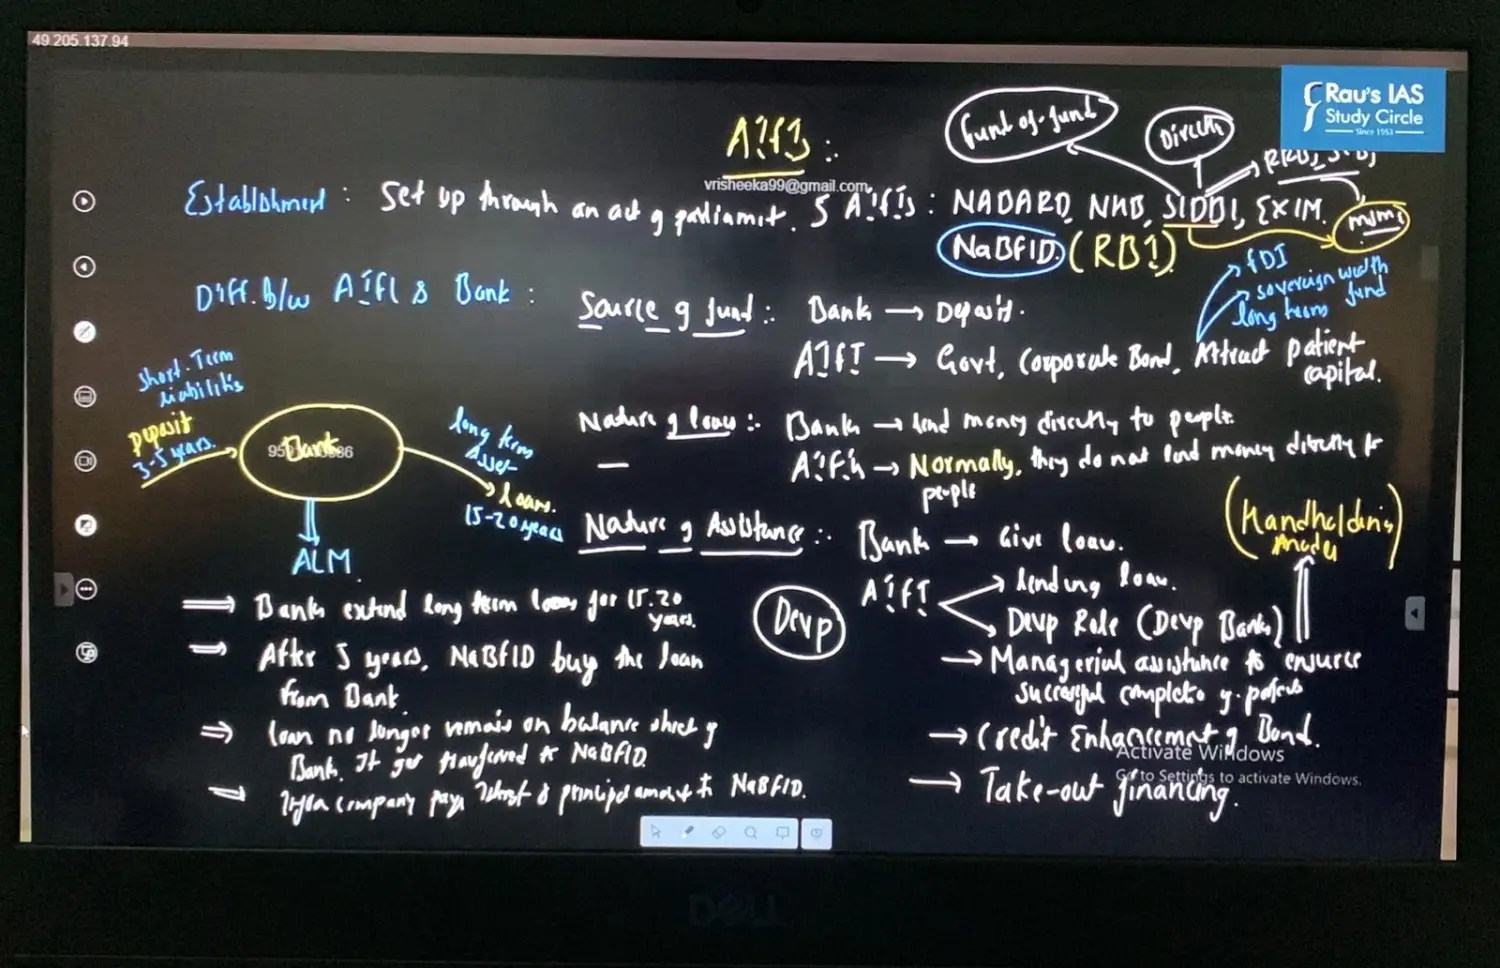 49.205.137.94
Rau's IAS
Study Circle
Since 1953
AIFIs :
vrisheeka99@gmail.com
Fund of fund
Direct
Establishment : Set up through an act of parliament. 5 AIFIs : NABARD, NHB, SIDBI, EXIM.
MSME
NaBFID. (RBI)
FDI
sovereign wealth fund
long term
Diff. b/w AIFI & Bank :
Source of fund :. Bank → Deposit.
AIFI → Govt, Corporate Bond, Attract patient capital.
Short-Term
Liabilities
Deposit
3-5 years.
Bank
long term
Asset
loans.
15-20 years
ALM
Nature of loan :. Bank → lend money directly to people.
AIFI → Normally, they do not lend money directly to
people
Nature of Assistance :. Bank → Give loan.
(Handholding
AIFI → lending loan.
→ Devp Role (Devp Banks)
Devp
→ Managerial assistance to ensure
successful completion of projects
→ Credit Enhancement of Bond.
→ Take-out financing.
⇒ Banks extend long term loans for 15-20
years.
⇒ After 5 years, NaBFID buy the loan
from Bank
⇒ loan no longer remain on balance sheet of
Bank. It get transferred to NaBFID.
⇒ Infra company pays Interest & principal amount to NaBFID.
Activate Windows
Go to Settings to activate Windows.
DELL